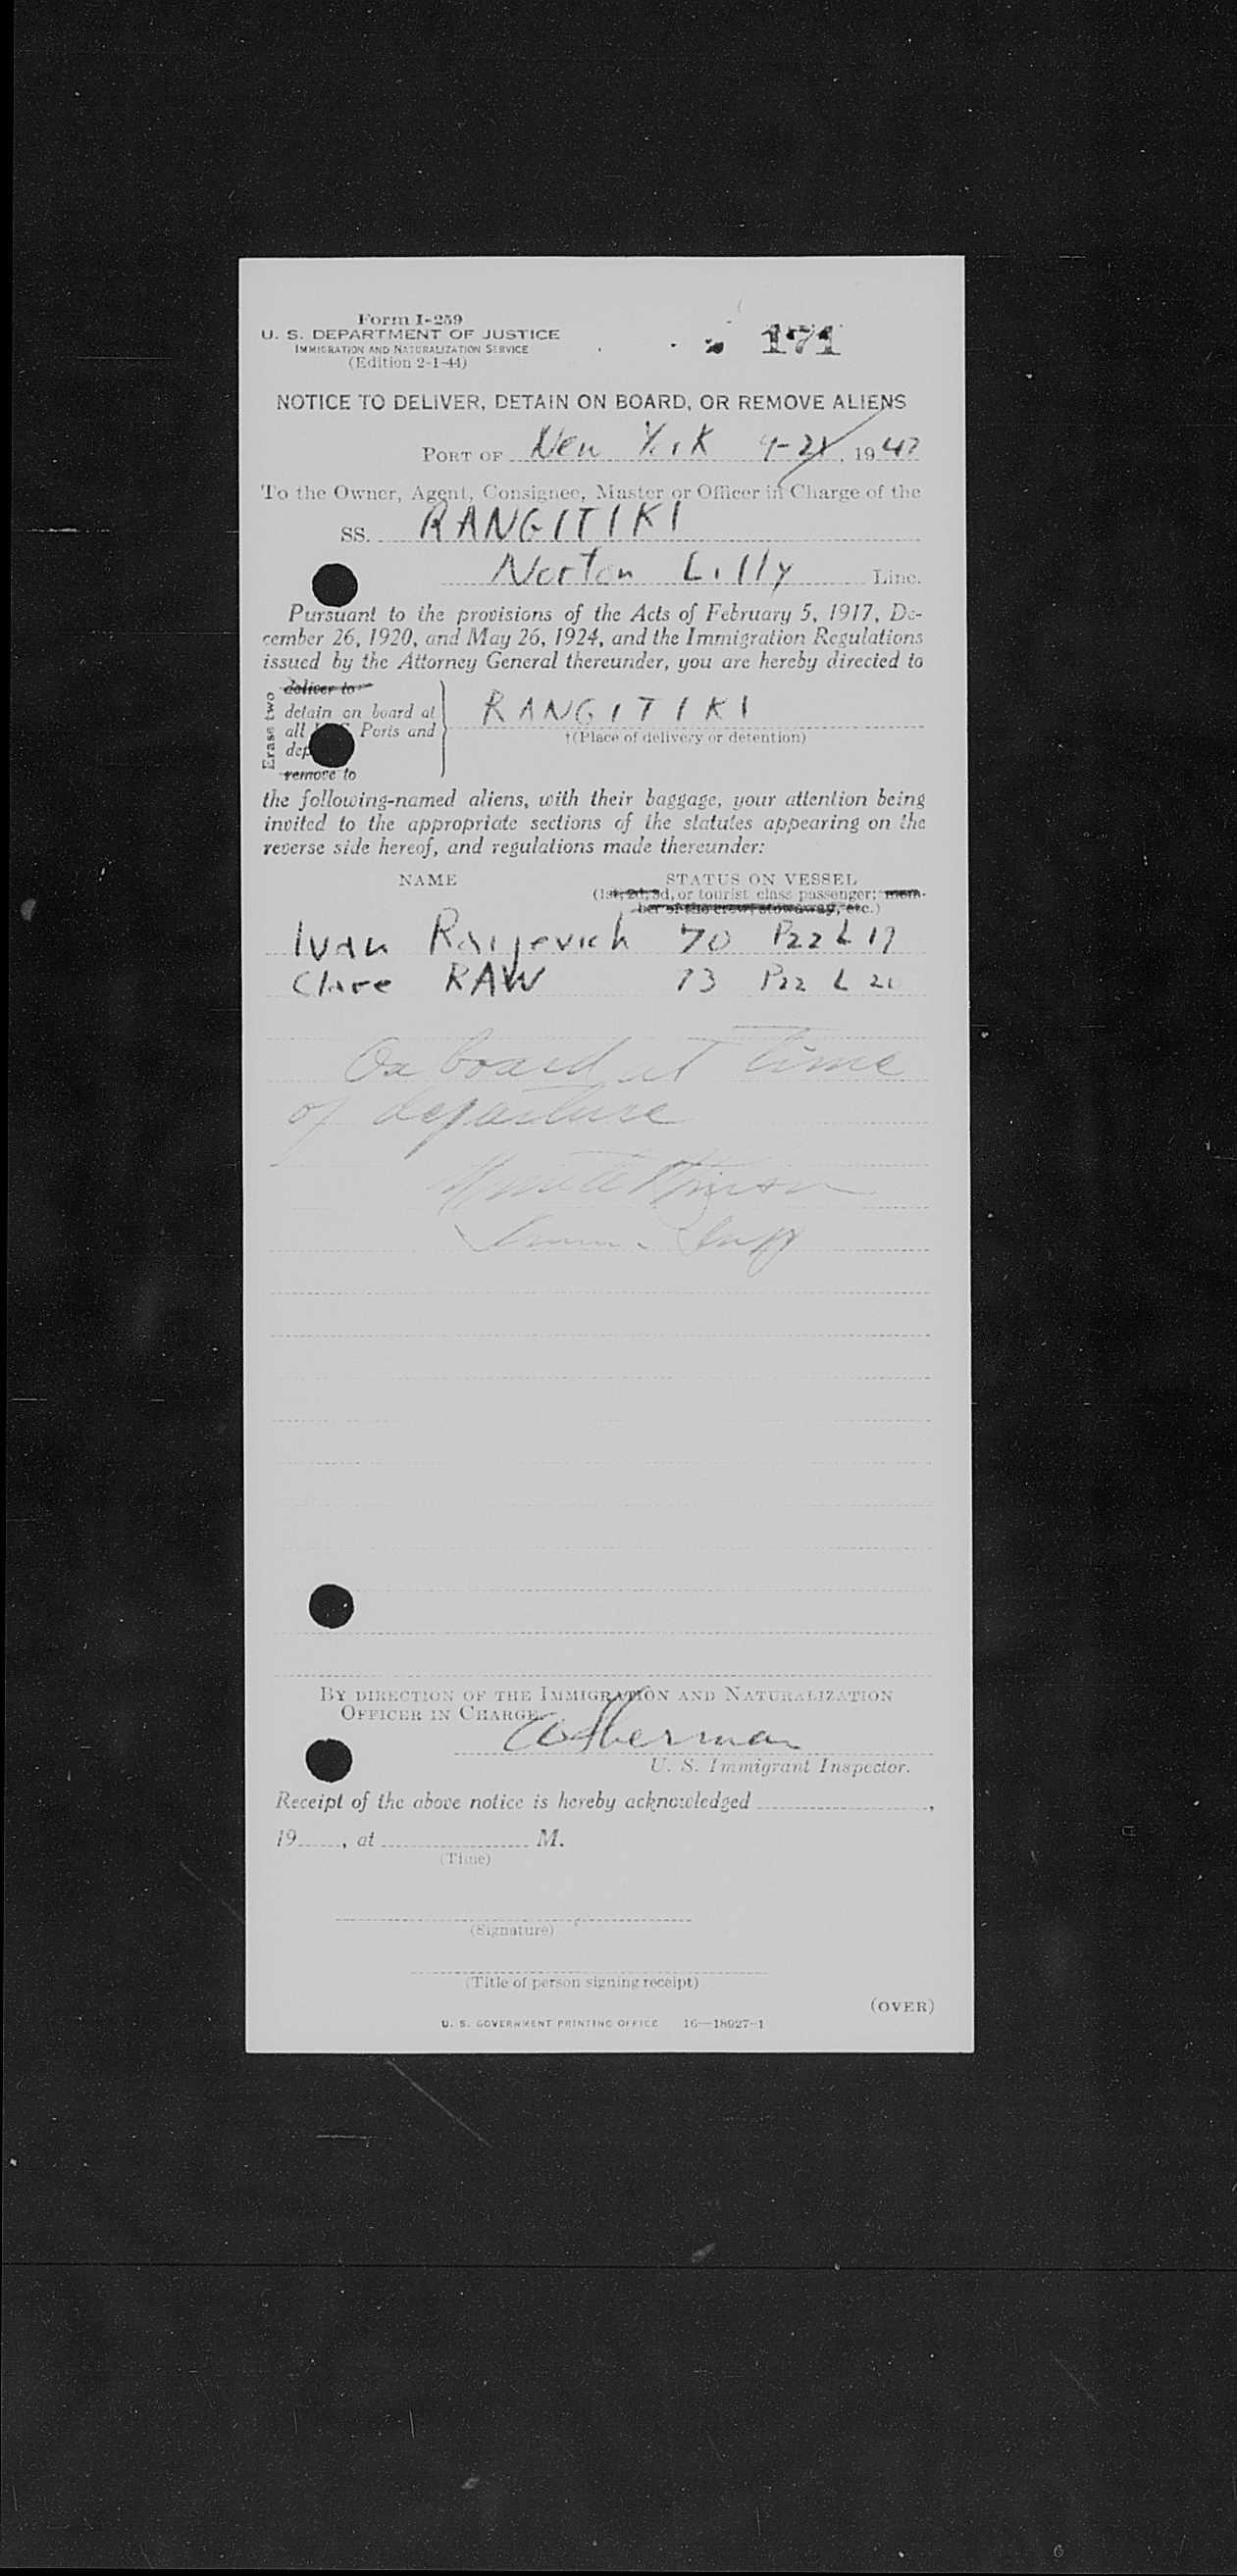 Form I-259
U. S. DEPARTMENT OF JUSTICE
IMMIGRATION AND NATURALIZATION SERVICE
(Edition 2-1-44)
171
NOTICE TO DELIVER, DETAIN ON BOARD, OR REMOVE ALIENS
PORT OF New York 9-21, 1947
To the Owner, Agent, Consignee, Master or Officer in Charge of the
SS. RANGITIKI
Norton Lilly Line.
Pursuant to the provisions of the Acts of February 5, 1917, De-
cember 26, 1920, and May 26, 1924, and the Immigration Regulations
issued by the Attorney General thereunder, you are hereby directed to
Erase two
deliver to
detain on board at
all Ports and
dep
remove to
RANGITIKI
†(Place of delivery or detention)
the following-named aliens, with their baggage, your attention being
invited to the appropriate sections of the statutes appearing on the
reverse side hereof, and regulations made thereunder:
NAME STATUS ON VESSEL
(1st, 2d, 3d, or tourist class passenger; mem-
ber of the crew, stowaway, etc.)
Ivan 70 P22 L 19
Clare RAW 73 P22 L 20
On board at time
of departure
BY DIRECTION OF THE IMMIGRATION AND NATURALIZATION
OFFICER IN CHARGE.
Sherman
U. S. Immigrant Inspector.
Receipt of the above notice is hereby acknowledged ,
19 , at M.
(Time)
(Signature)
(Title of person signing receipt)
(OVER)
U. S. GOVERNMENT PRINTING OFFICE 16—18927-1